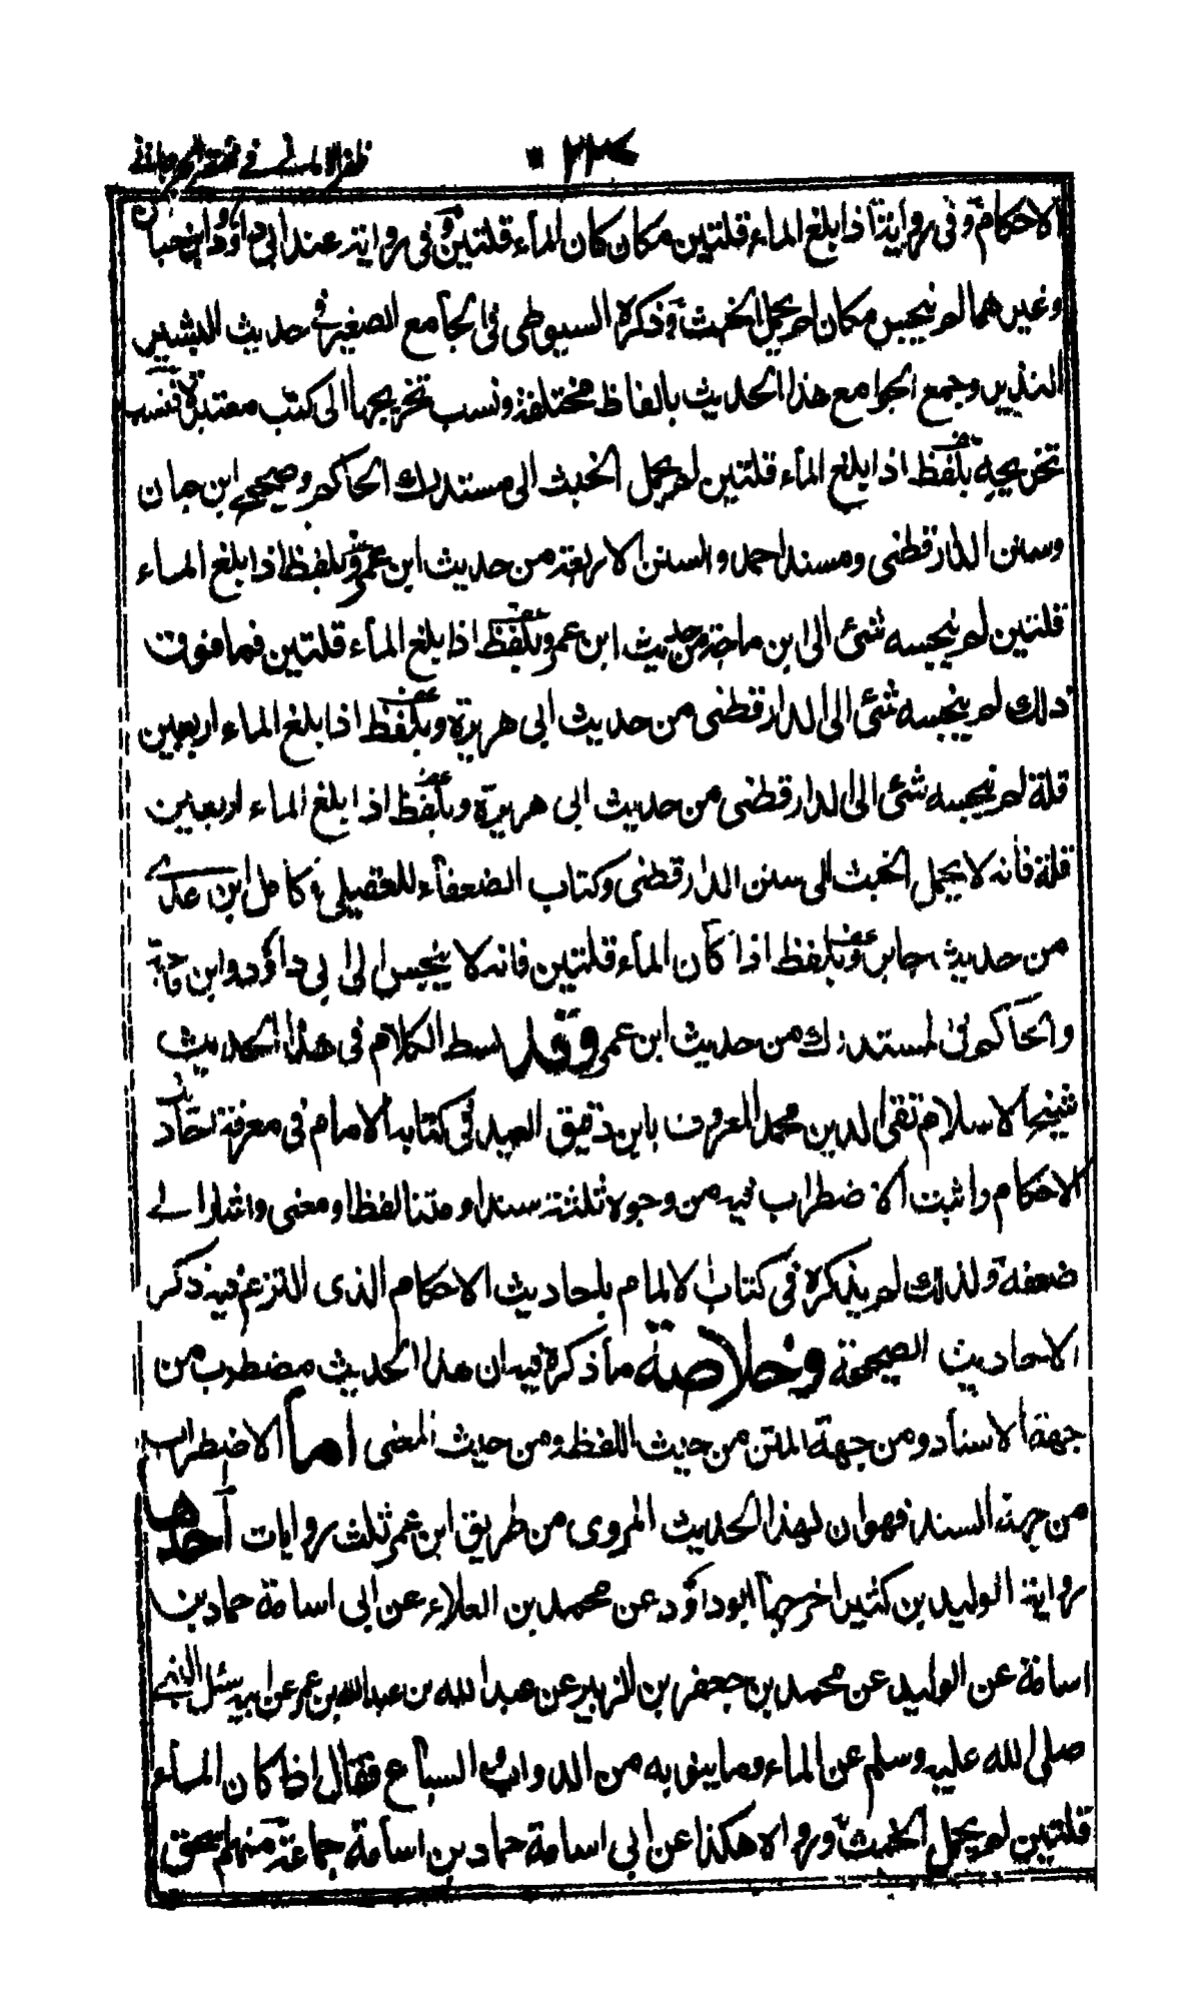 ظفر الاماني في مختصر الجرجاني
الاحكام وفي رواية اذا بلغ الماء قلتين مكان كان الماء قلتين وفي رواية عند ابي داؤد وابن حبان
وغيرهما لم ينجس مكان لم يحمل الخبث وذكره السيوطي في الجامع الصغير في حديث البشير
النذير وجمع الجوامع هذا الحديث بالفاظ مختلفة ونسب تخريجها الى كتب معتبرة فنسب
تخريجه بلفظ اذا بلغ الماء قلتين لم يحمل الخبث الى مستدرك الحاكم وصحيح ابن حبان
وسنن الدارقطني ومسند احمد والسنن الاربعة من حديث ابن عمر وبلفظ اذا بلغ الماء
قلتين لم ينجسه شئ الى ابن ماجة من حديث ابن عمر وبلفظ اذا بلغ الماء قلتين فما فوق
ذلك لم ينجسه شئ الى الدارقطني من حديث ابي هريرة وبلفظ اذا بلغ الماء اربعين
قلة لم ينجسه شئ الى الدارقطني من حديث ابي هريرة وبلفظ اذا بلغ الماء اربعين
قلة فانه لا يحمل الخبث الى سنن الدارقطني وكتاب الضعفاء للعقيلي وكامل ابن عدي
من حديث جابر وبلفظ اذا كان الماء قلتين فانه لا ينجس الى ابي داؤد وابن ماجة
والحاكم في المستدرك من حديث ابن عمر وقد بسط الكلام في هذا الحديث
شيخ الاسلام تقي الدين محمد المعروف بابن دقيق العيد في كتابه الامام في معرفة احاديث
الاحكام واثبت الاضطراب فيه من وجوه ثلثة سندا ومتنا لفظا ومعنى واشار الى
ضعفه ولذلك لم يذكره في كتاب الالمام باحاديث الاحكام الذي التزم فيه ذكر
الاحاديث الصحيحة وخلاصة ما ذكره فيه ان هذا الحديث مضطرب من
جهة الاسناد ومن جهة المتن من حيث اللفظ ومن حيث المعنى اما الاضطراب
من جهة السند فهو ان لهذا الحديث المروي من طريق ابن عمر ثلث روايات احدها
رواية الوليد بن كثير اخرجها ابو داؤد عن محمد بن العلاء عن ابي اسامة حماد بن
اسامة عن الوليد عن محمد بن جعفر بن الزبير عن عبد الله بن عبد الله بن عمر عن ابيه سئل النبي
صلى الله عليه وسلم عن الماء وما ينوبه من الدواب والسباع فقال اذا كان الماء
قلتين لم يحمل الخبث ورواه هكذا عن ابي اسامة حماد بن اسامة جماعة منهم اسحق